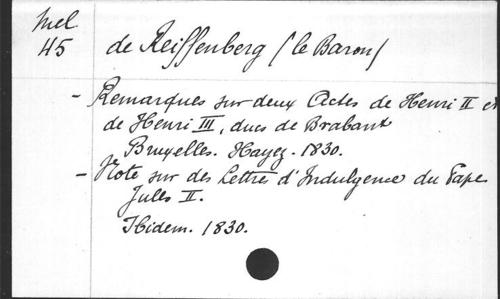 Mel
45
de Reiffenberg (le Baron)
- Remarques sur deux Actes de Henri II et
de Henri III, ducs de Brabant
Bruxelles. Hayez. 1830.
- Note sur des Lettres d'Indulgence du Pape
Jules II.
Ibidem. 1830.